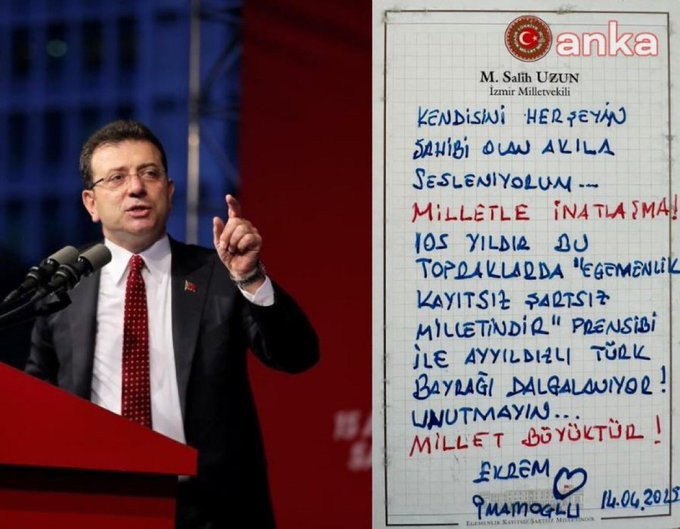 anka
M. Salih UZUN
İzmir Milletvekili
KENDİSİNİ HERŞEYİN
SAHİBİ OLAN AKILA
SESLENİYORUM...
MİLLETLE İNATLAŞMA!
105 YILDIR BU
TOPRAKLARDA "EGEMENLİK
KAYITSIZ ŞARTSIZ
MİLLETİNDİR" PRENSİBİ
İLE AYYILDIZLI TÜRK
BAYRAĞI DALGALANIYOR!
UNUTMAYIN...
MİLLET BÜYÜKTÜR!
EKREM
İMAMOĞLU 14.04.2025
EGEMENLİK KAYITSIZ ŞARTSIZ MİLLETİNDİR